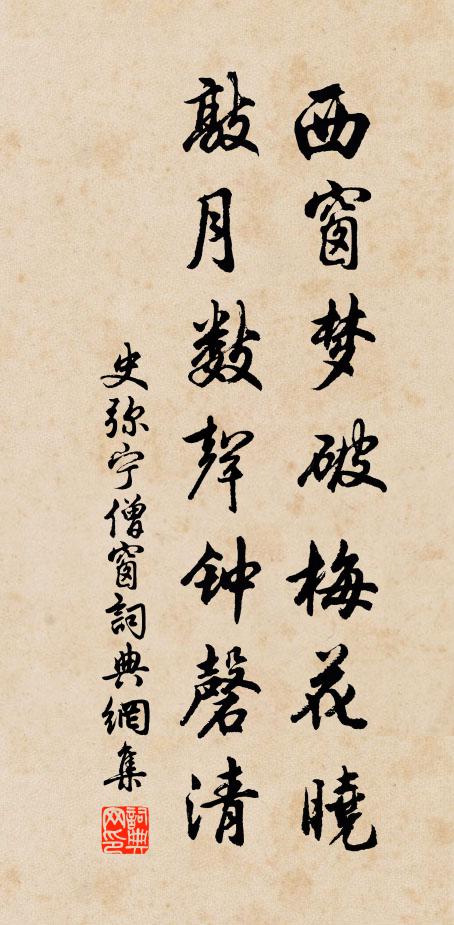 西窗梦破梅花晓
敲月数声钟磬清
史弥宁僧窗詞典網集
詞典网印